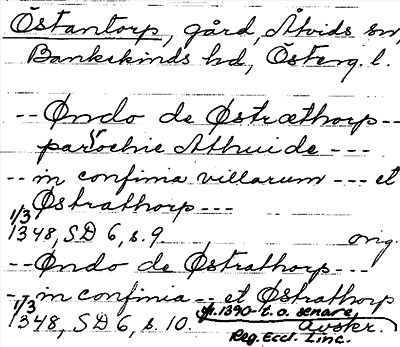 Östantorp, gård, Åtvids sn,
Bankekinds hd, Österg. l.
-- Øndo de Østræthorp --
parochie Athuide ---
-- in confinia villarum --- et
Østrathorp ---
1/3 1348, SD 6, s. 9. orig.
-- Øndo de Østrathorp ---
-- in confinia -- et Østrathorp
1/3 1348, SD 6, s. 10. 1390-t. o. senare,
avskr.
Reg. Eccl. Linc.